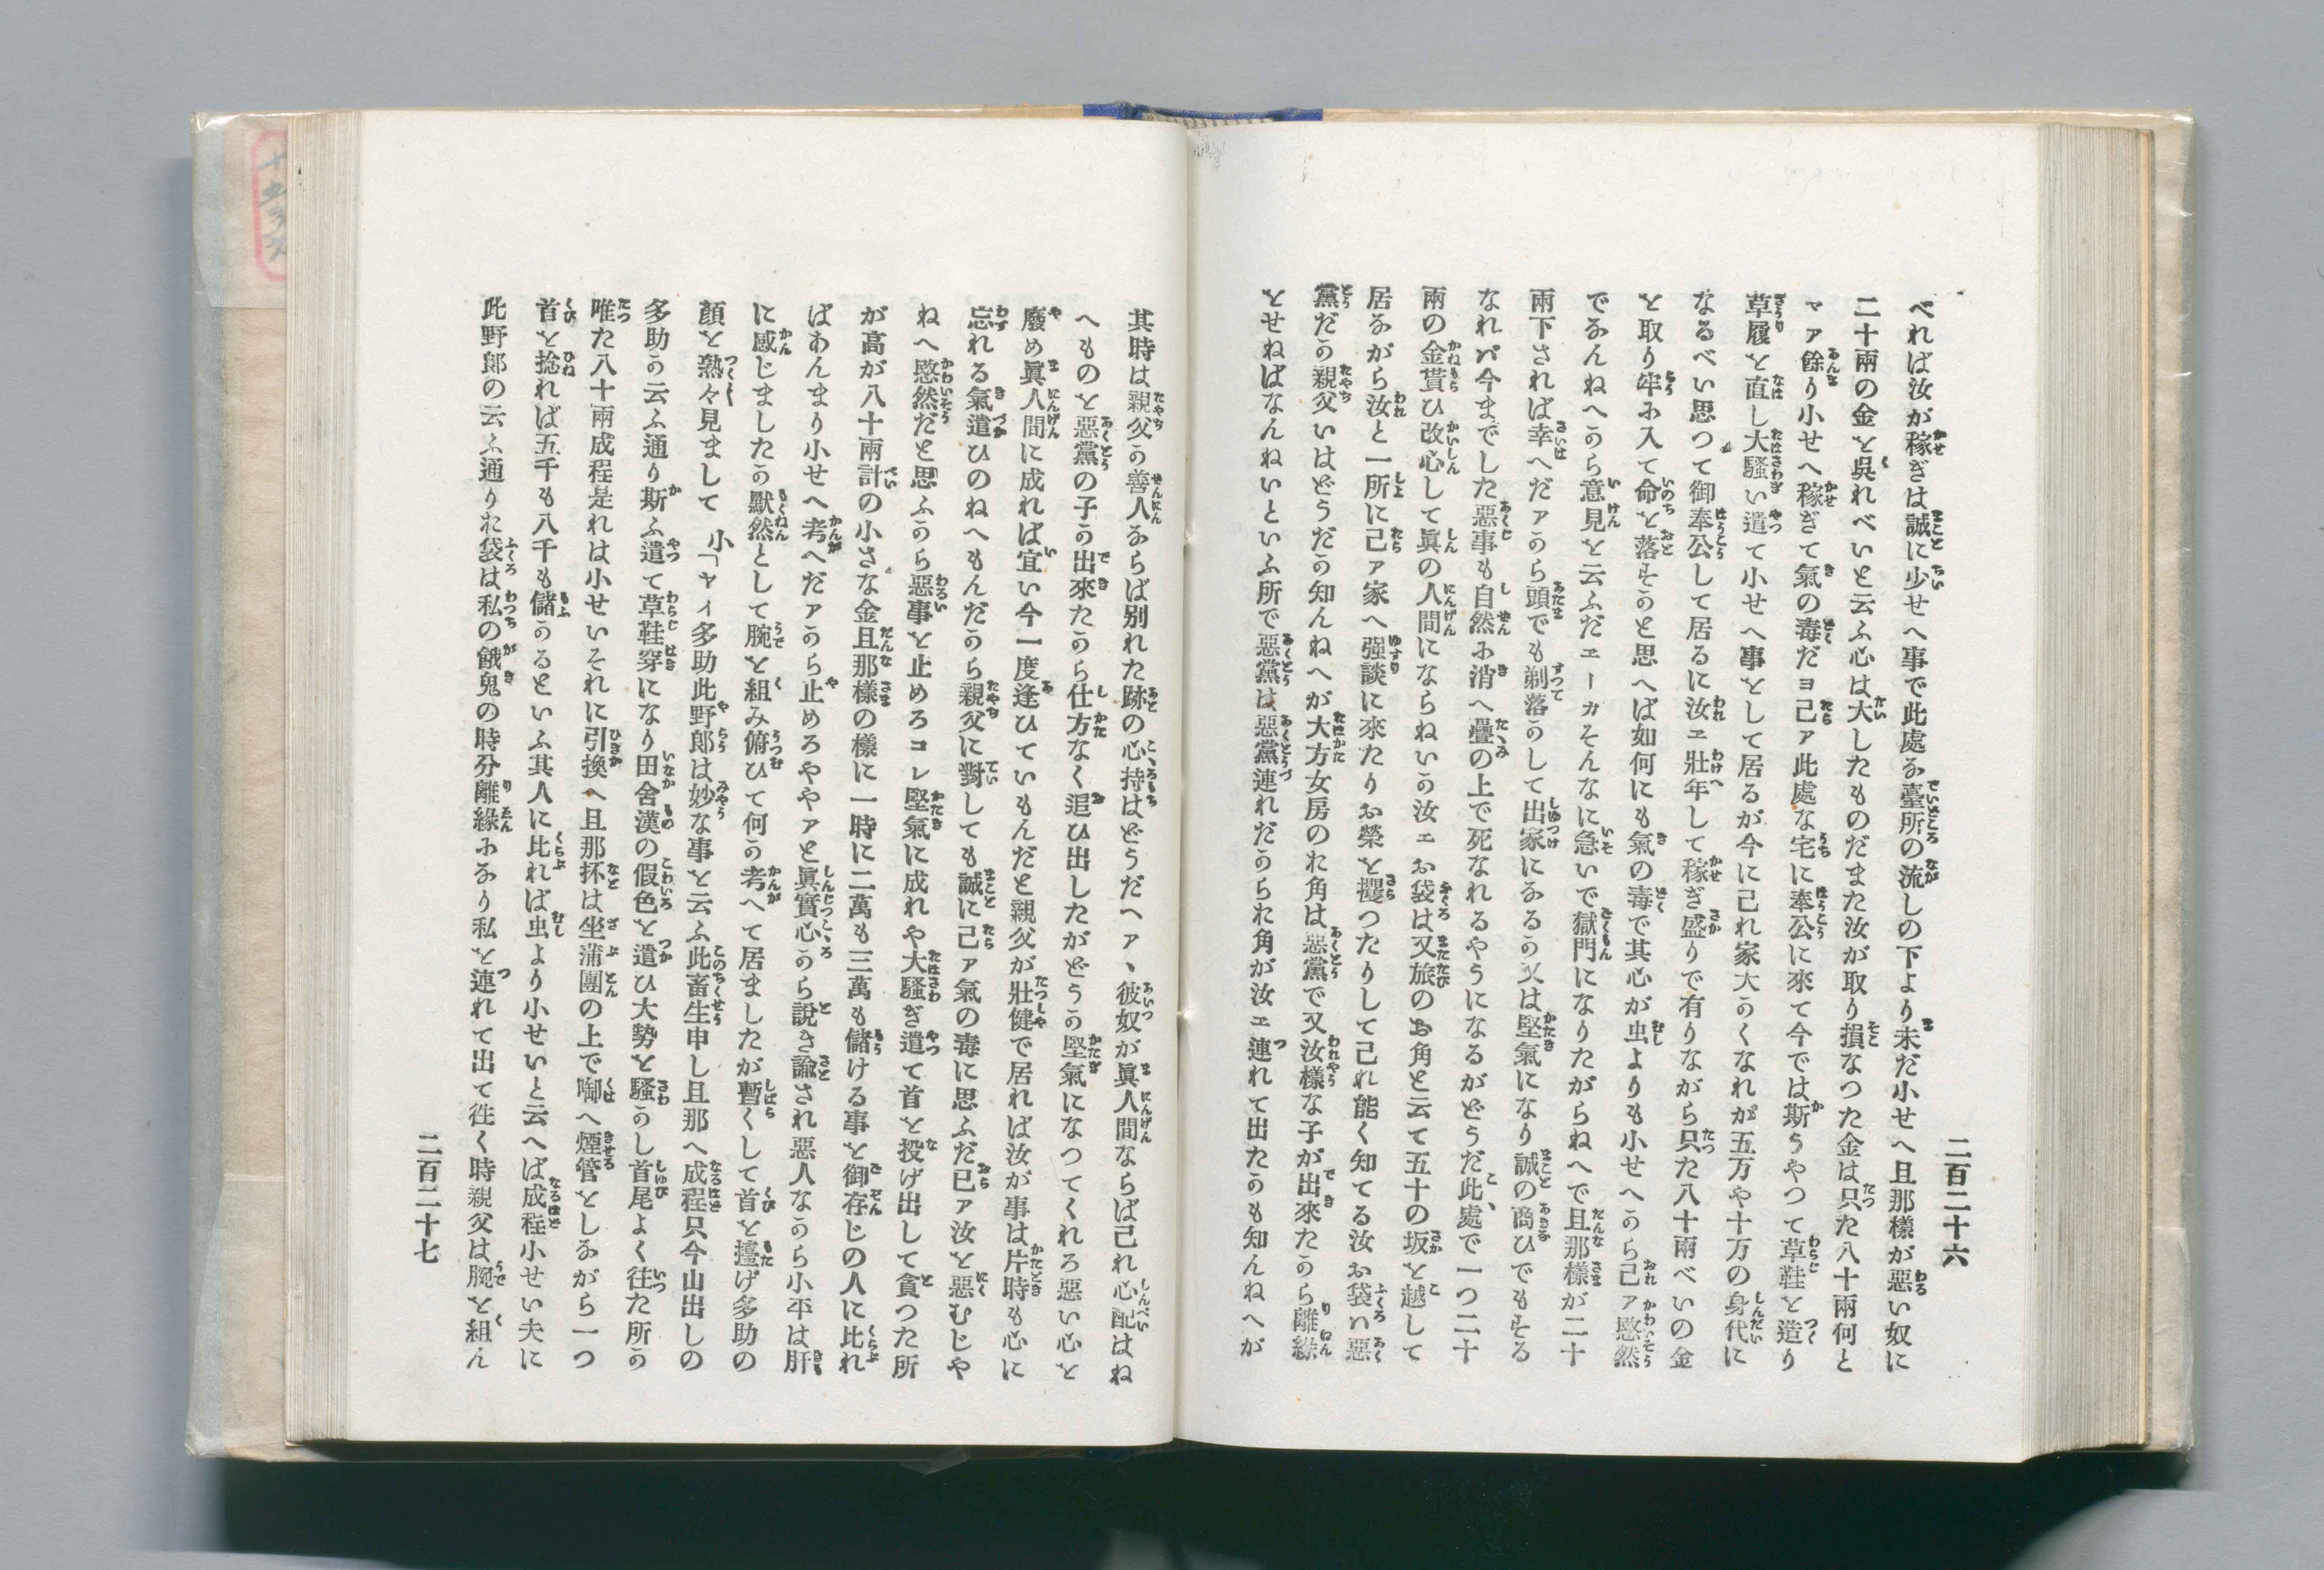 二百二十六
べれば汝が稼ぎは誠に少せへ事で此處な臺所の流しの下より未だ小せへ且那樣が惡い奴に
二十兩の金を呉れべいと云ふ心は大したものだまた汝が取り損なつた金は只た八十兩何と
マア餘り小せへ稼ぎて氣の毒だヨ己ア此處な宅に奉公に來て今では斯うやつて草鞋を造り
草履を直し大騷い遣て小せへ事をして居るが今に己れ家大かくなれが五万や十万の身代に
なるべい思つて御奉公して居るに汝エ壯年して稼ぎ盛りで有りながら只た八十兩べいの金
を取り牢に入て命を落すかと思へば如何にも氣の毒で其心が虫よりも小せへから己ア愍然
でなんねへから意見を云ふだエーカそんなに急いで獄門になりたがらねへで且那樣が二十
兩下されば幸へだアから頭でも剃落かして出家になるか又は堅氣になり誠の商ひでもする
なれバ今までした惡事も自然に消へ疊の上で死なれるやうになるがどうだ此處で一つ二十
兩の金貰ひ改心して眞の人間にならねいか汝エお袋は又旅のお角と云て五十の坂を越して
居ながら汝と一所に己ア家へ強談に來たりお榮を攫つたりして己れ能く知てる汝お袋い惡
黨だか親父いはどうだか知んねへが大方女房のお角は惡黨で又汝樣な子が出來たから離緣
をせねばなんねいといふ所で惡黨は惡黨連れだからお角が汝エ連れて出たかも知んねへが
其時は親父か善人ならば別れた跡の心持はどうだヘア、彼奴が眞人間ならば己れ心配はね
へものを惡黨の子か出來たから仕方なく追ひ出したがどうか堅氣になつてくれろ惡い心を
廢め眞人間に成れば宜い今一度逢ひていもんだと親父が壯健で居れば汝が事は片時も心に
忘れる氣遣ひのねへもんだから親父に對しても誠に己ア氣の毒に思ふだ已ア汝を惡むじや
ねへ愍然だと思ふから惡事を止めろコレ堅氣に成れや大騷ぎ遣て首を投げ出して貪つた所
が高が八十兩計の小さな金且那樣の樣に一時に二萬も三萬も儲ける事を御存じの人に比れ
ばあんまり小せへ考へだアから止めろややアと眞實心から說き諭され惡人なから小平は肝
に感じましたか默然として腕を組み俯ひて何か考へて居ましたが暫くして首を擡げ多助の
顏を熟々見まして 小「ヤイ多助此野郎は妙な事を云ふ此畜生申し且那へ成程只今山出しの
多助か云ふ通り斯ふ遣て草鞋穿になり田舍漢の假色を遣ひ大勢を騷かし首尾よく徃た所か
唯た八十兩成程是れは小せいそれに引換へ且那抔は坐蒲團の上で啣へ煙管をしながら一つ
首を捻れば五千も八千も儲かるといふ其人に比れば虫より小せいと云へば成程小せい夫に
此野郎の云ふ通りお袋は私の餓鬼の時分離緣になり私を連れて出て徃く時親父は腕を組ん
二百二十七